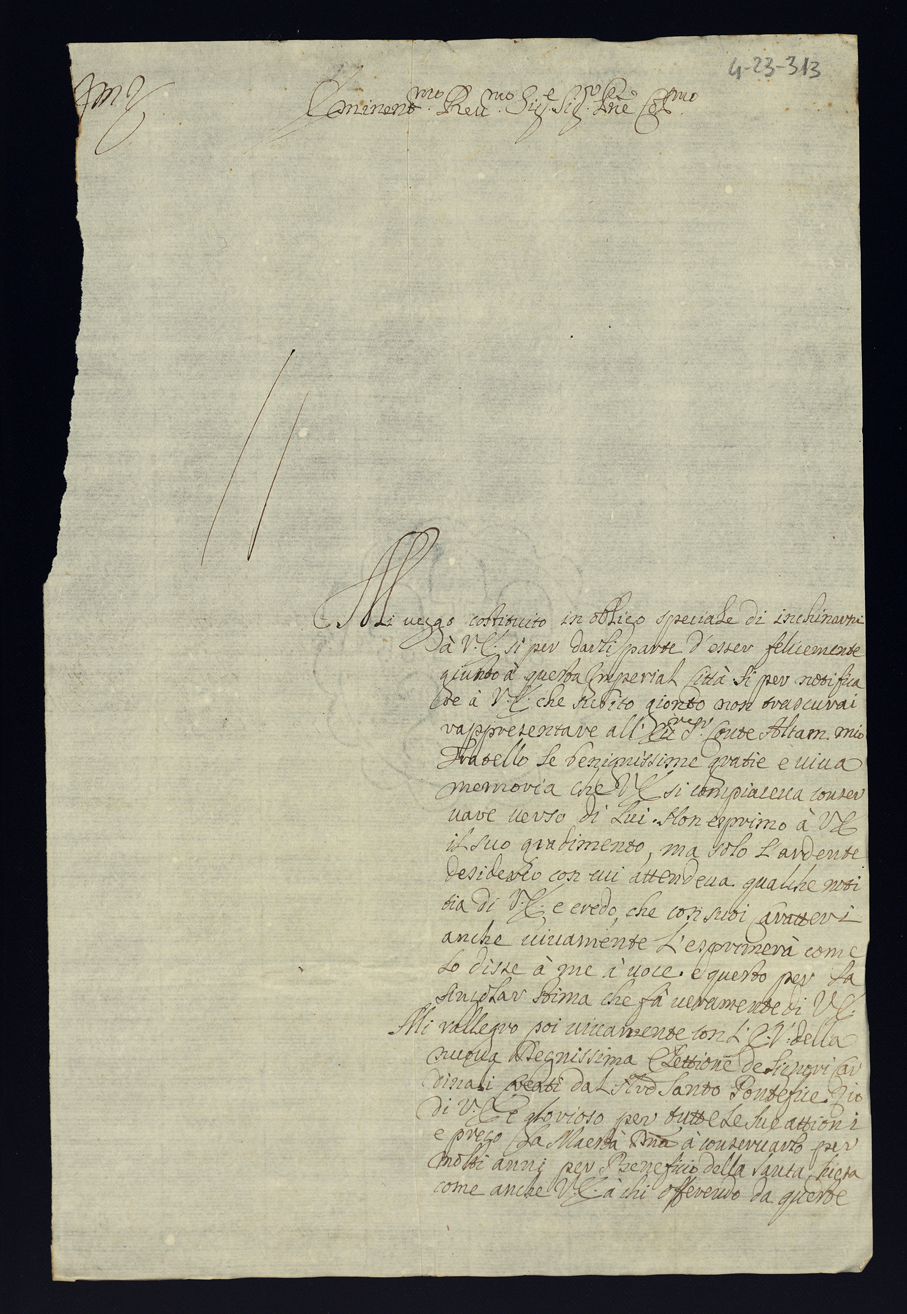 4-23-313
Eminent.mo Reu.mo Sig.e Sig.e Pñe Col.mo
Mi uego costituito in obligo speciale di inchinarme
à V:E: si per darli parte d'esser felicemente
giunto à questa Imperial Città si per notifica
re à V:E: che subito gionto non trascurai
rappresentare all'Ecc.mo S.r Conte Altam. mio
Fratello le benignissime gratie e uiua
memoria che V:E: si compiaceua conser
uare uerso di Lui. Non esprimo à V:E:
il suo gradimento, ma solo l'ardente
desiderio con cui attendeua qualche noti
tia di V:E: e credo, che con suoi Caratteri
anche uiuamente l'esprimerà come
lo disse à me à uoce. e questo per la
singolar stima che fà ueramente di V:E:
Mi rallegro poi uiuamente con l'E:V: della
nuoua Degnissima Elettione de Signori Car
dinali creati dal Nrõ Santo Pontefice. Zio
di V:E: è glorioso per tutte le sue attioni
e prego la Maestà Diña à conseruarlo per
molti anni per Beneficio della Santa Chiesa
come anche V:E: à chi offerendo da queste